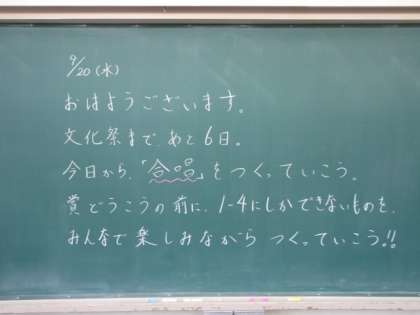 9/20(水)
おはようございます。
文化祭まで、あと6日。
今日から、「合唱」をつくっていこう。
賞どうこうの前に、1-4にしかできないものを、
みんなで楽しみながらつくっていこう!!